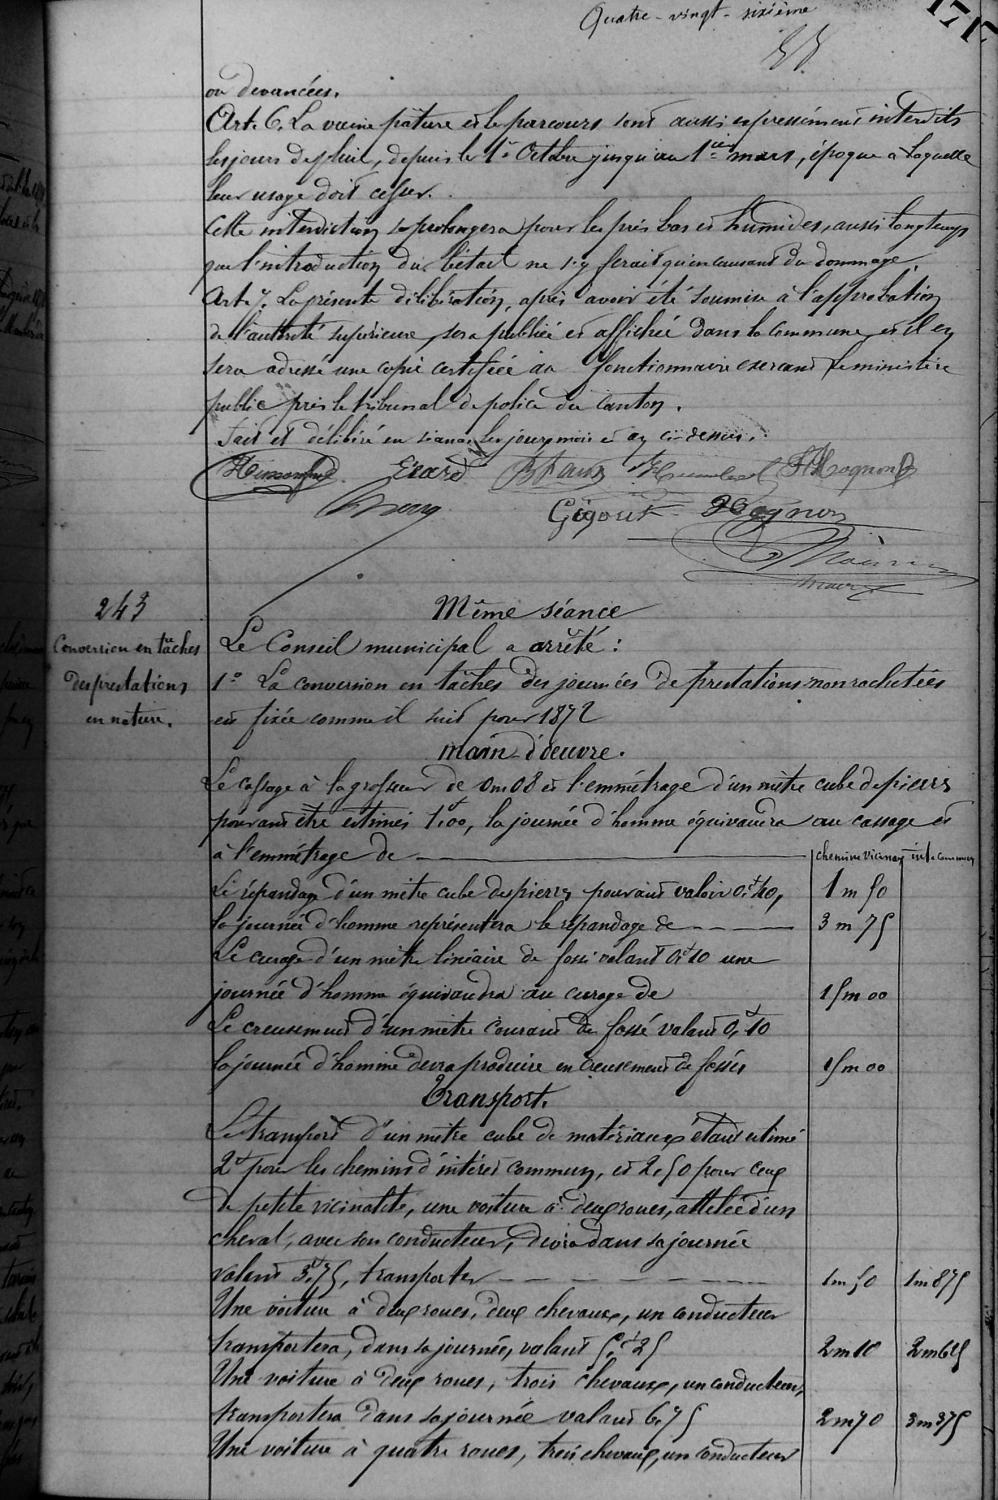 Quatre-vingt-sixième
171
ou devancées.
Art. 6. La vaine pâture et le parcours sont aussi expressément interdits
les jours de pluie, depuis le 1er Octobre jusqu'au 1er mars, époque à laquelle
leur usage doit cesser.
Cette interdiction se prolongera pour les prés bas et humides, aussi longtemps
que l'introduction du bétail ne s'y ferait qu'en causant du dommage.
Art. 7. La présente délibération, après avoir été soumise à l'approbation
de l'autorité supérieure, sera publiée et affichée dans la commune et il en
sera adressé une copie certifiée au fonctionnaire exerçant le ministère
public près le tribunal de police du Canton.
Fait et délibéré en séance les jour, mois et an ci-dessus.
Gigout Hognon
maire
243
Conversion en tâches
des prestations
en nature.
Même séance
Le Conseil municipal a arrêté :
1° La conversion en tâches des journées de prestations non rachetées
est fixée comme il suit pour 1872
main-d'oeuvre.
Le cassage à la grosseur de 0m08 et l'emmétrage d'un mètre cube de pierres
pouvant être estimés 1f,00, la journée d'homme équivaudra au cassage et
à l'emmétrage de
chemins vicinaux int. commun
Le répandage d'un mètre cube de pierres pouvant valoir 0f,40, 1m50
la journée d'homme représentera le répandage de 3m75
Le curage d'un mètre linéaire de fossé valant 0f10 une
journée d'homme équivaudra au curage de 15m00
Le creusement d'un mètre courant de fossé valant 0f,10
la journée d'homme devra produire en creusement de fossés 15m00
Transport.
Le transport d'un mètre cube de matériaux étant estimé
2f pour les chemins d'intérêt commun, et 2,50 pour ceux
de petite vicinalité, une voiture à deux roues, attelée d'un
cheval, avec son conducteur, devra dans sa journée
valant 3f,75, transporter 1m50 1m875
Une voiture à deux roues, deux chevaux, un conducteur
transportera, dans sa journée, valant 5f,25 2m10 2m625
Une voiture à deux roues, trois chevaux, un conducteur,
transportera dans sa journée valant 6,75 2m70 3m375
Une voiture à quatre roues, trois chevaux, un conducteur